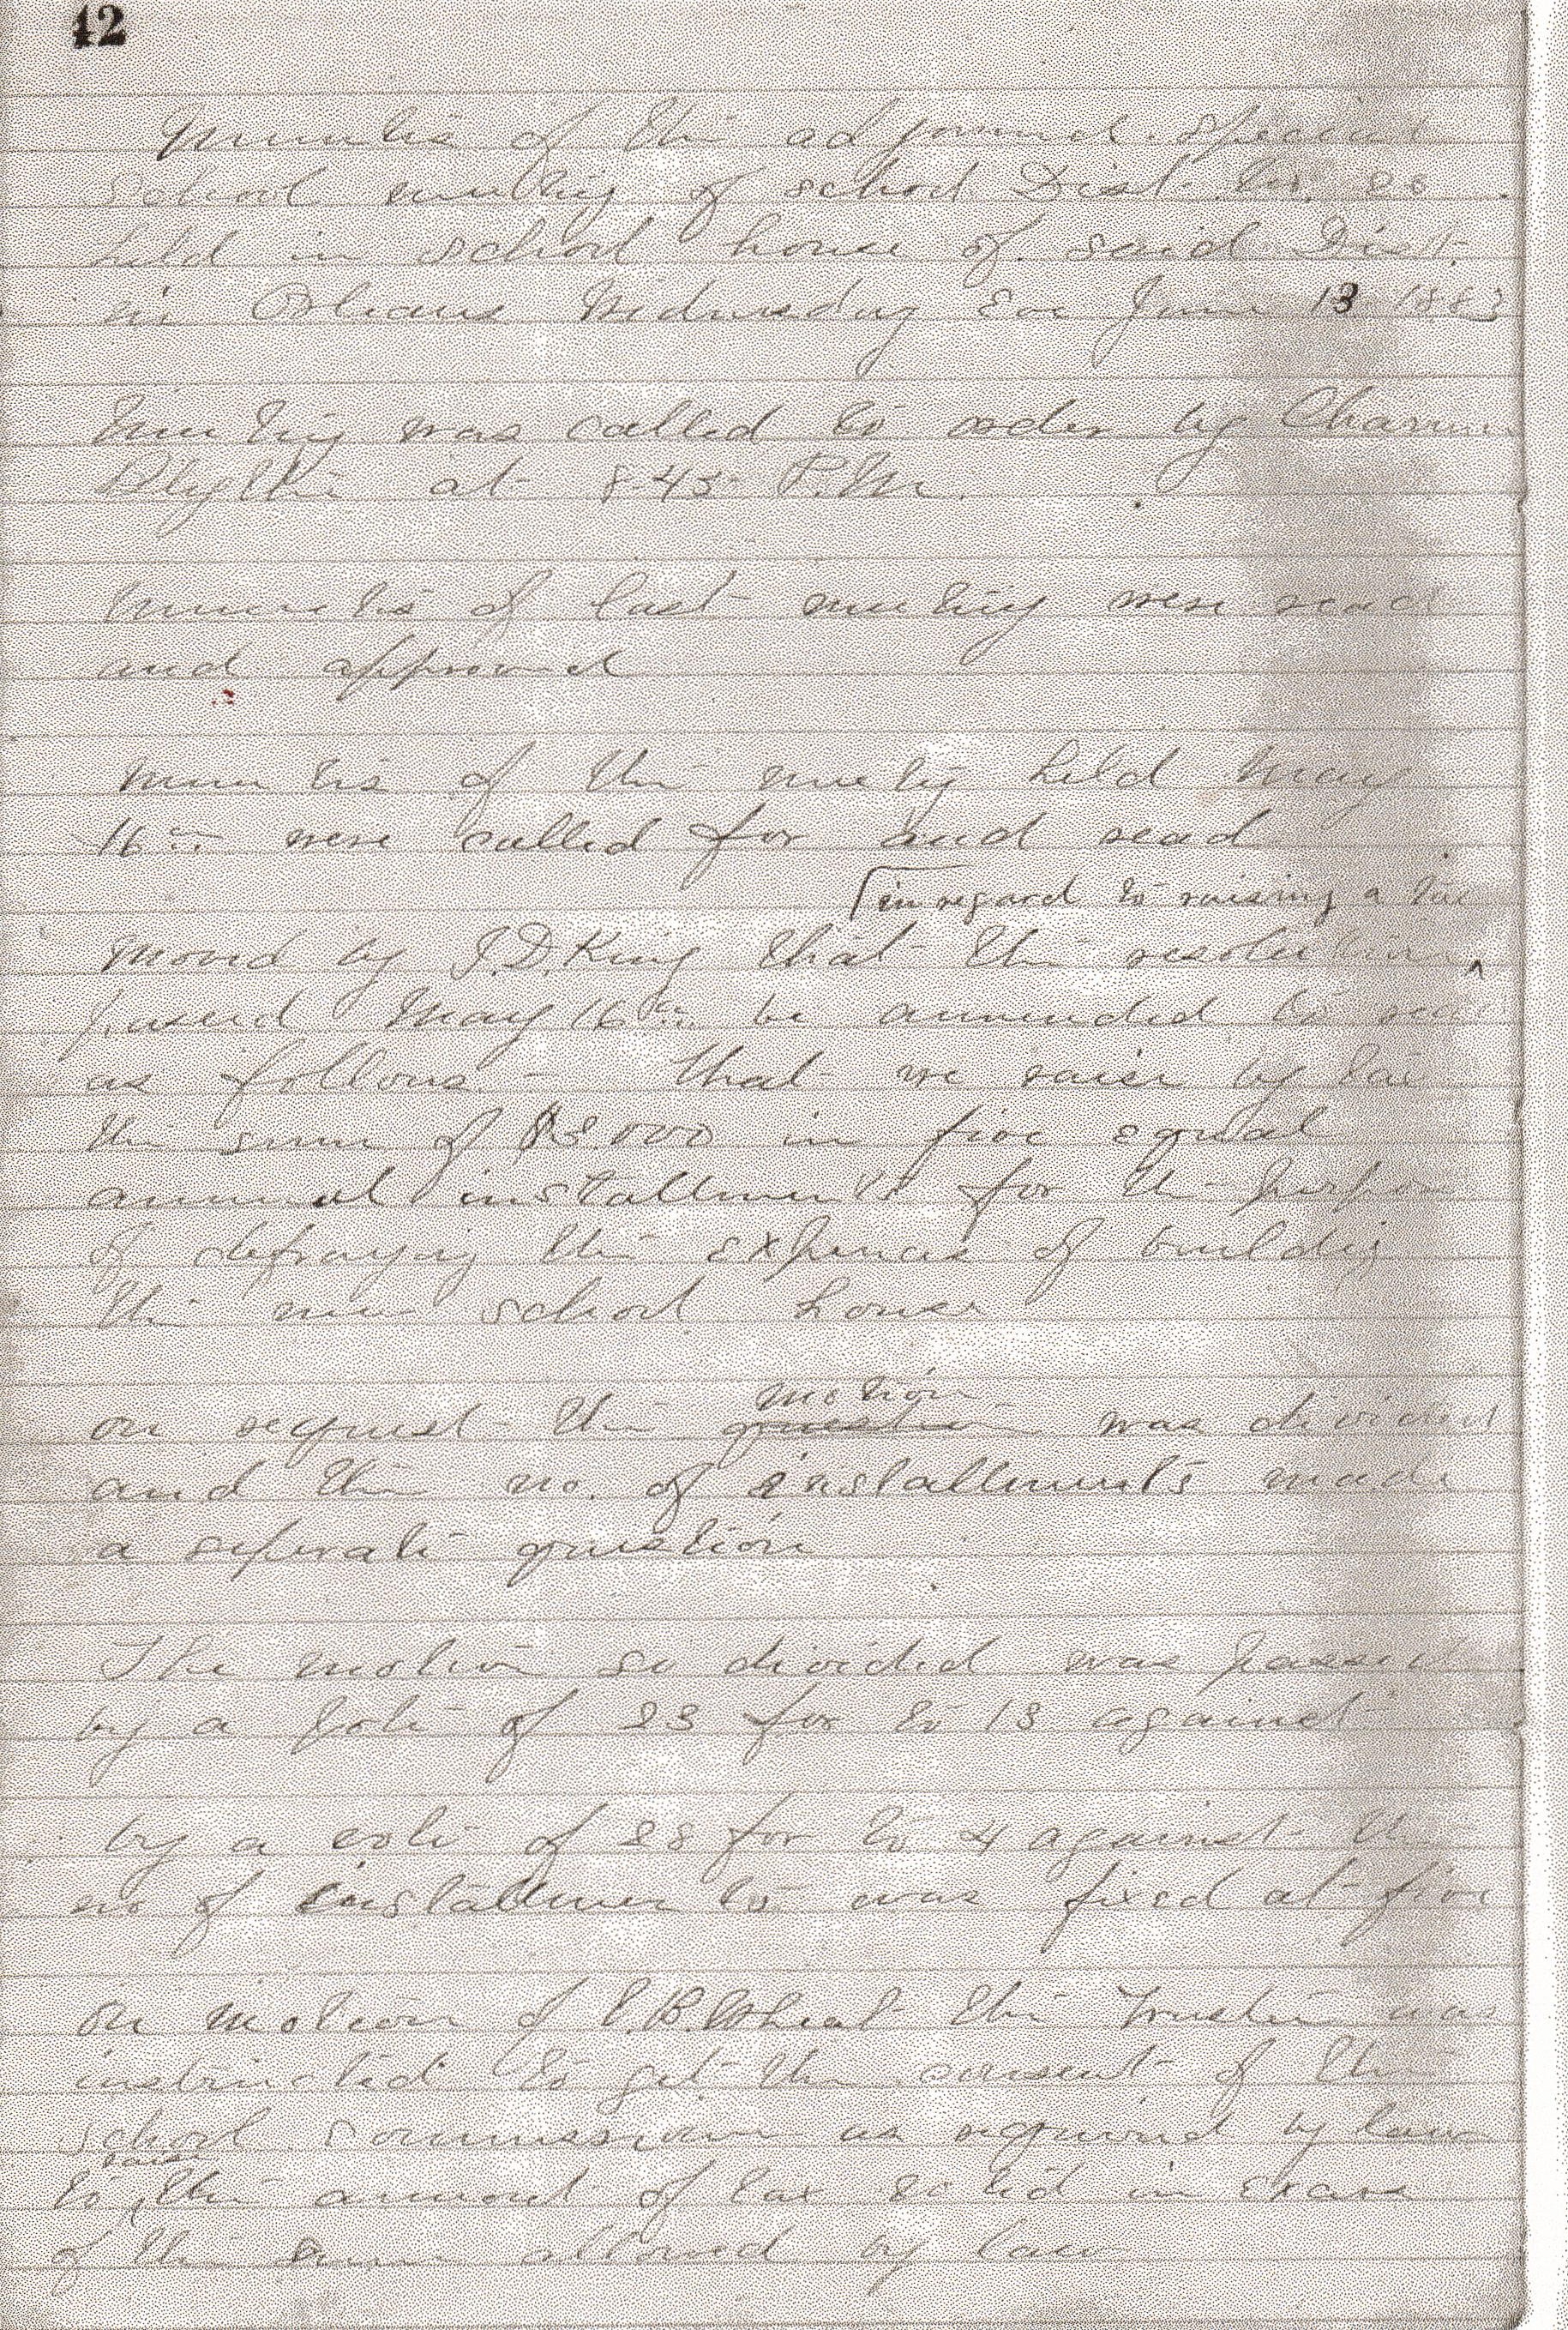 42
Minutes of the adjourned special
school meeting of school Dist. No.
held in school house of said Dist.
in Orleans Wednesday Eve June 13 1883
Meeting was called to order by
Blythe at 8-45 P.M.
Minutes of last meeting were read
and approved
Minutes of the meetig held May
16th were called for and read
in regard to raising a tax
moved by J.D. King that the resolution
passed May 16th be ammended to read
as follows - That we raise by tax
the sum of $3000 in five equal
annual installments for the
of defraying the expenses of buildig
the new school house
motion
on request the question was divided
and the no. of installments made
a seperate question
The motion so divided was passed
by a vote of 23 for to 13 against
by a vote of 28 for to 4 against the
no of installments was fixed at five
on motion of Wheat the trustee was
instructed to get the consent of the
school commissioner as required by law
raise
to the amount of tax voted in
of the sum allowed by law